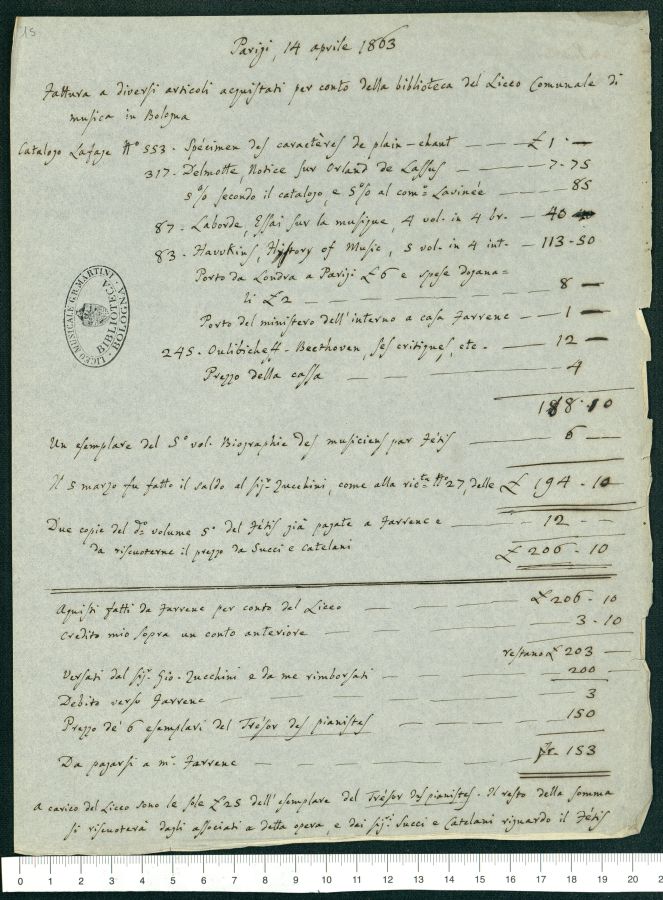 15
Parigi, 14 aprile 1863
Fattura a diversi articoli acquistati per conto della biblioteca del Liceo Comunale di
musica in Bologna
Catalogo Lafage Nº 553 - Spécimen des caractères de plain-chant — £ 1 - —
317 - Delmotte Notice sur Orland de Lassus — 7 - 75
5 % secondo il catalogo, e 5 % al com.º Lavinée — 85
87 - Laborde, Essai sur la musique, 4 vol. in 4 br. — 40 —
83 - Hawkins, History of Music, 5 vol. in 4 int. — 113 - 50
Porto da Londra a Parigi £ 6 e spese dogana=
li £ 2 — 8 —
Porto del ministero dell'interno a casa Farrenc — 1 —
245 - Oulibicheff - Beethoven, ses critiques, etc. — 12 —
Prezzo della cassa — 4
188 - 10
Un esemplare del 5º vol. Biographie des musiciens par Fétis — 6 —
Il 5 marzo fu fatto il saldo al sigr. Zucchini, come alla ric.ta Nº 27, delle £ 194 - 10
Due copie del dº volume 5º del Fétis già pagate a Farrenc e — 12 - -
da riscuoterne il prezzo da Succi e Catelani £ 206 - 10
Aquisti fatti da Farrenc per conto del Liceo — £ 206 - 10
Credito mio sopra un conto anteriore — 3 - 10
restano £ 203 —
Versati dal sigr. Gio. Zucchini e da me rimborsati — 200
Debito verso Farrenc — 3
Prezzo de' 6 esemplari del Trésor des pianistes — 150
Da pagarsi a mr. Farrenc — fr. 153
A carico del Liceo sono le sole £ 25 dell'esemplare del Trésor des pianistes - Il resto della somma
si riscuoterà dagli associati a detta opera, e dai sigri. Succi e Catelani riguardo il Fétis
LICEO MUSICALE G.B. MARTINI · BOLOGNA ·
BIBLIOTECA
0 1 2 3 4 5 6 7 8 9 10 11 12 13 14 15 16 17 18 19 20 2